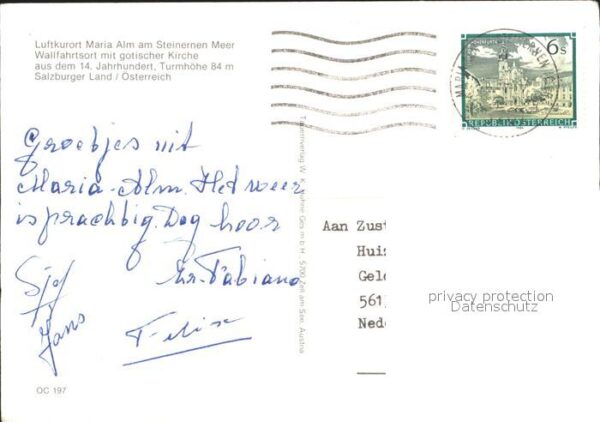 Luftkurort Maria Alm am Steinernen Meer
Wallfahrtsort mit gotischer Kirche
aus dem 14. Jahrhundert, Turmhöhe 84 m
Salzburger Land / Österreich
6s
REPUBLIK ÖSTERREICH
Groetjes uit
Maria-Alm. Het weer
is prachtig. Dag hoor
Sjef
Fabiano
Jans
Felix
Aan Zust
Huis
Geld
561
Nede
privacy protection
Datenschutz
OC 197